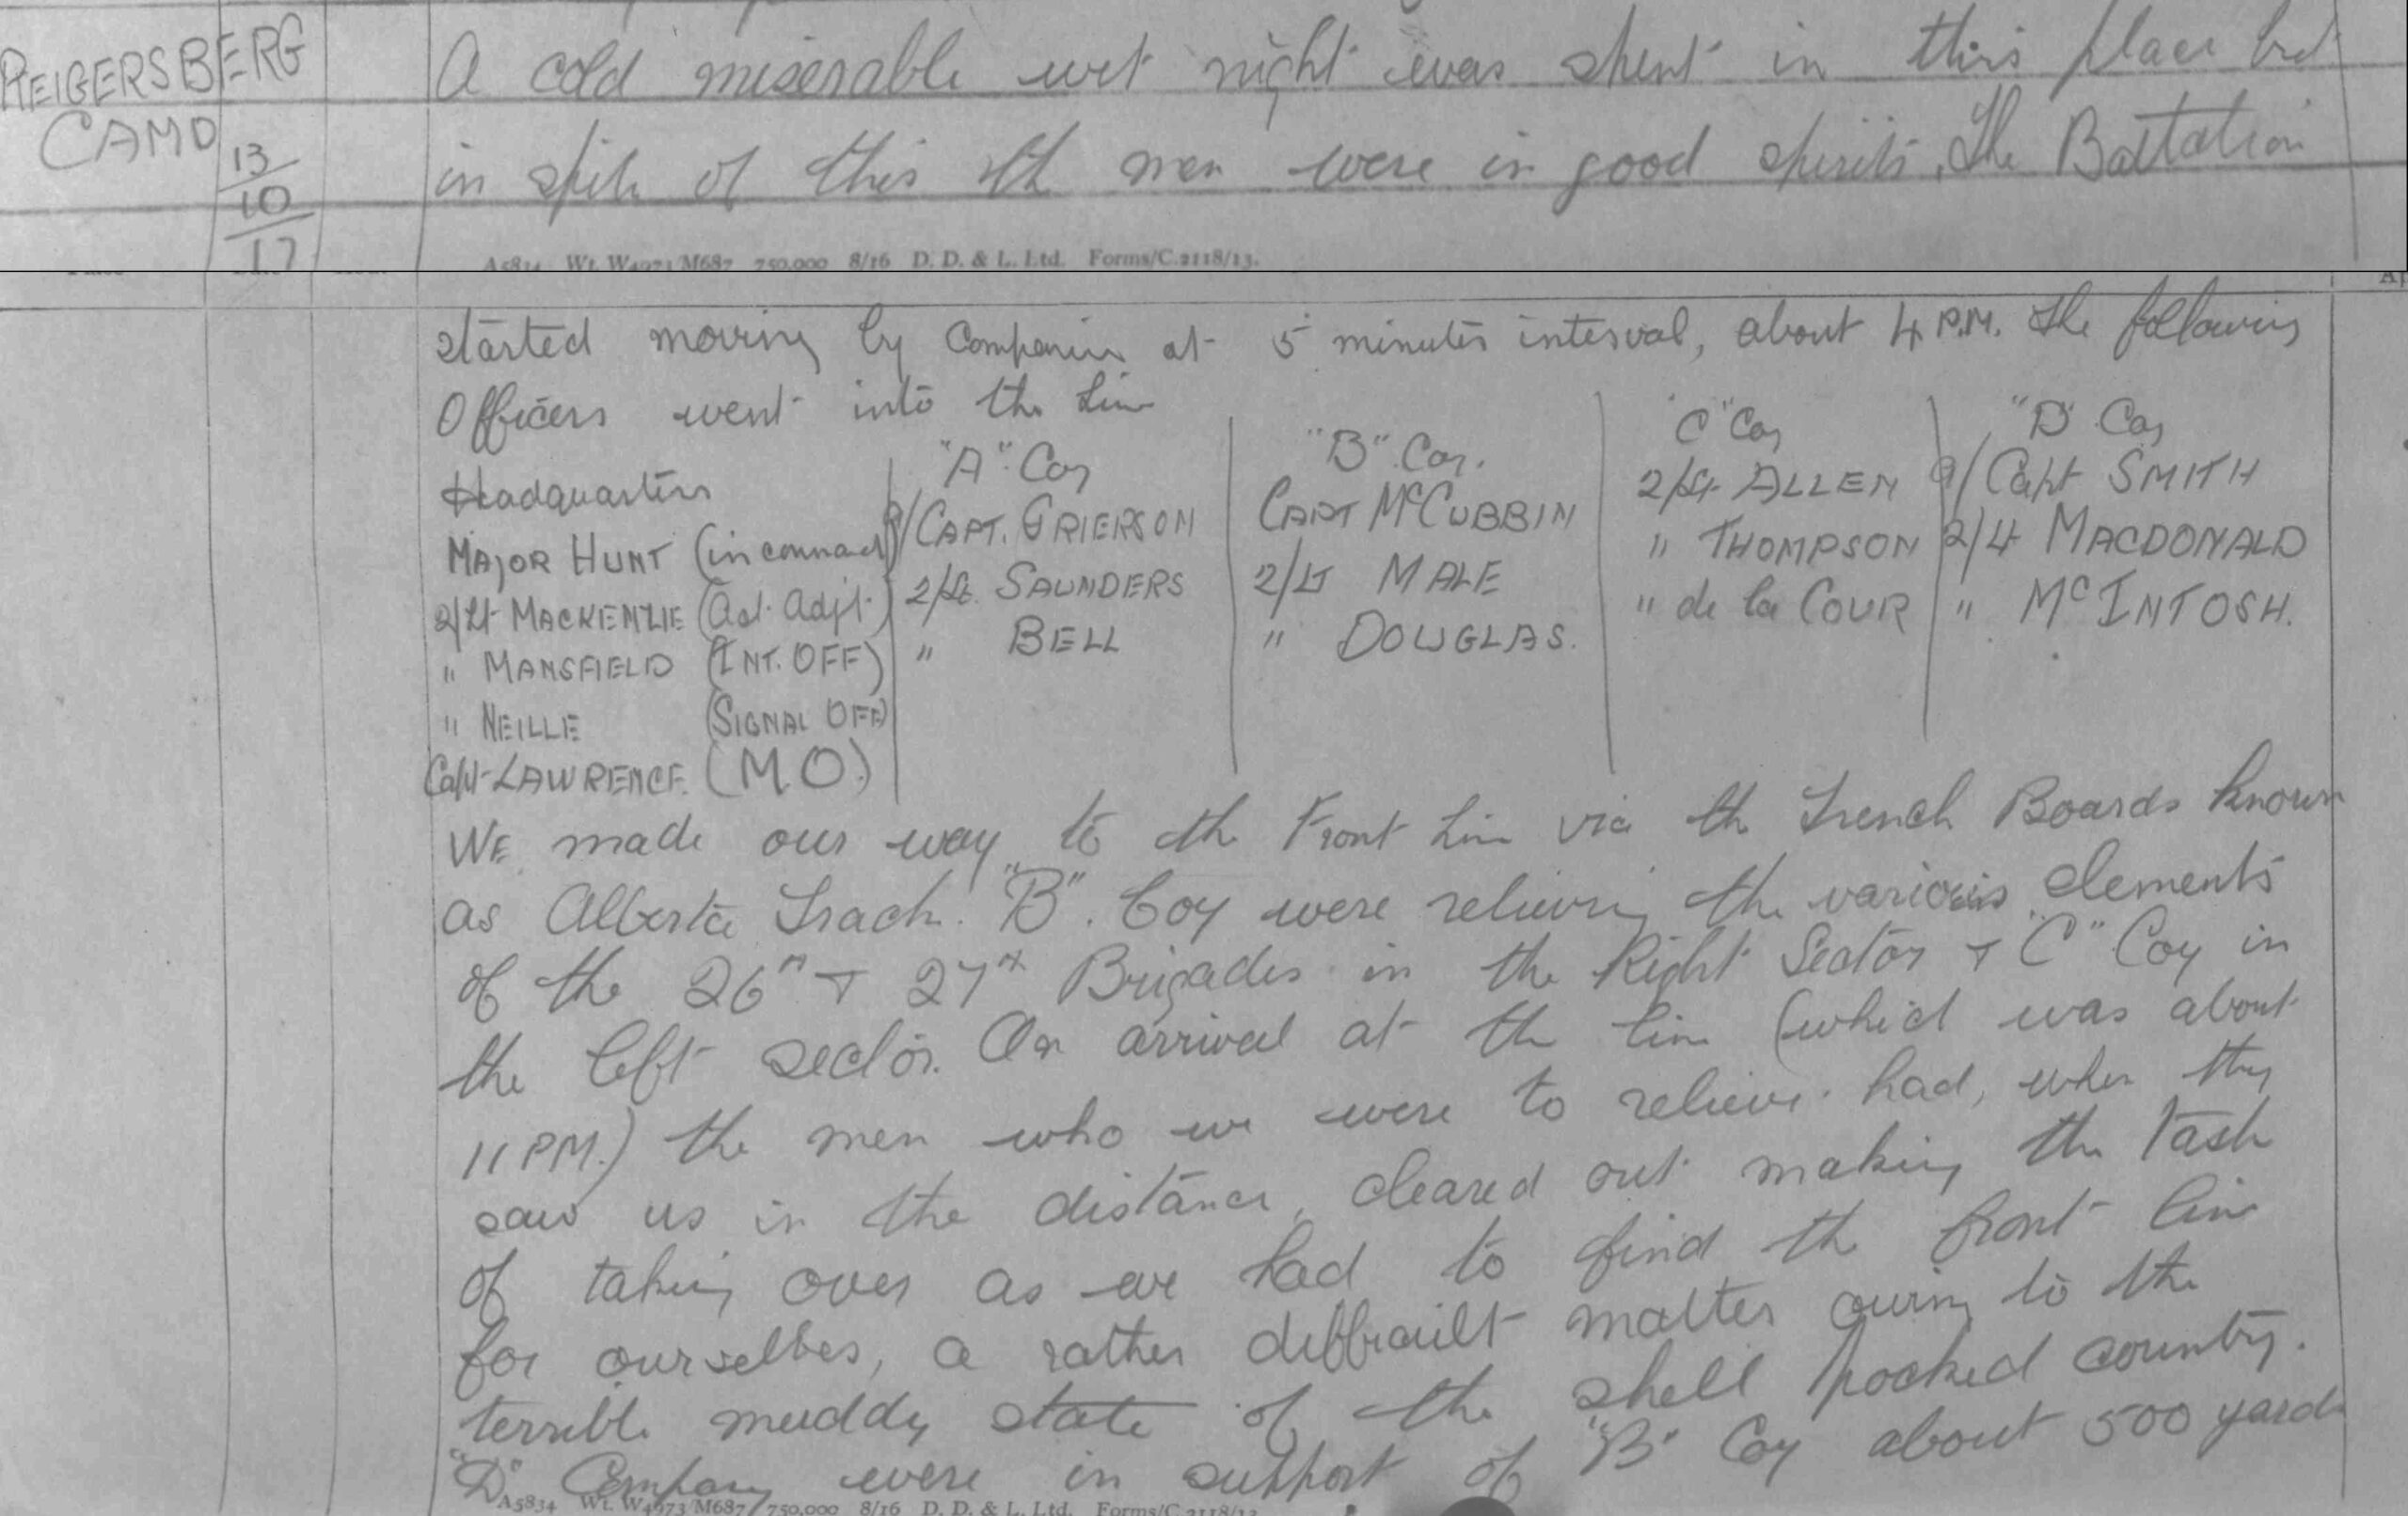 REIGERSBERG
CAMP
13/10/17
A cold miserable wet night was spent in this place but
in spite of this th men were in good spirits. The Battalion
A5834 Wt. W4973/M687 750,000 8/16 D. D. & L. Ltd. Forms/C.2118/13.
started moving by Companies at 5 minutes interval, about 4 P.M. The following
Officers went into the Line
Headquarters
MAJOR HUNT (in command)
2/Lt MACKENZIE (Act. Adjt.)
" MANSFIELD (INT. OFF)
" NEILLE (SIGNAL OFF)
Capt LAWRENCE. (M.O.)
"A" Coy
A/CAPT. GRIERSON
2/Lt. SAUNDERS
" BELL
"B" Coy.
CAPT McCUBBIN
2/Lt MALE
" DOUGLAS.
"C" Coy
2/Lt ALLEN
" THOMPSON
" de la COUR
"D" Coy
A/Capt SMITH
2/Lt MACDONALD
" McINTOSH.
WE made our way to th Front Line via th Trench Boards known
as Alberta Track. "B". Coy were relieving the various elements
of the 26th + 27th Brigades in the Right Sector + "C" Coy in
the left sector. On arrival at th line (which was about
11 PM.) the men who we were to relieve had, when they
saw us in the distance, cleared out making the task
of taking over as we had to find th front line
for ourselves, a rather difficult matter owing to the
terrible muddy state of the shell pocked country.
"D" Company were in support of "B" Coy about 500 yards
A5834 Wt. W4973/M687 750,000 8/16 D. D. & L. Ltd. Forms/C.2118/13.